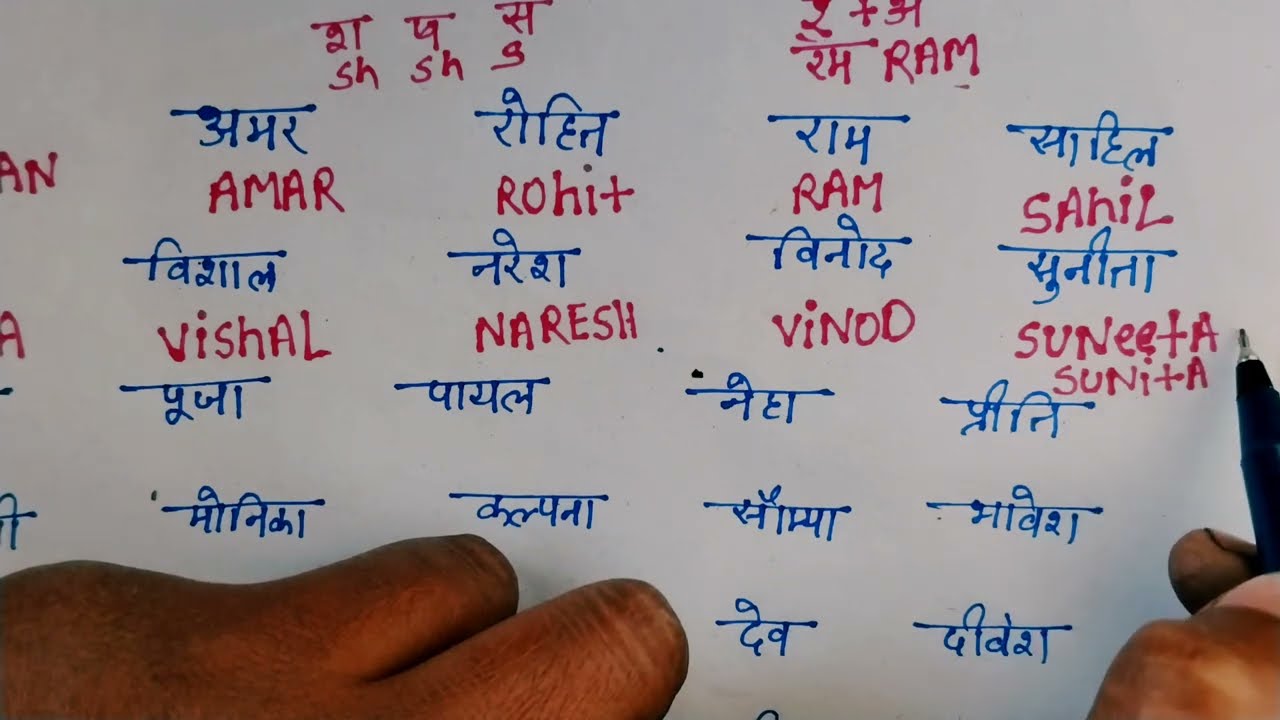 श ष स
sh sh s
र + अ
रम RAM
अमर रोहित राम साहिल
AN AMAR ROhit RAM SAhiL
विशाल नरेश विनोद सुनीता
A VishAL NARESH ViNOD SUNeetA
SUNitA
पूजा पायल नेहा प्रीति
मोनिका कल्पना सौम्या भावेश
देव दीवेश